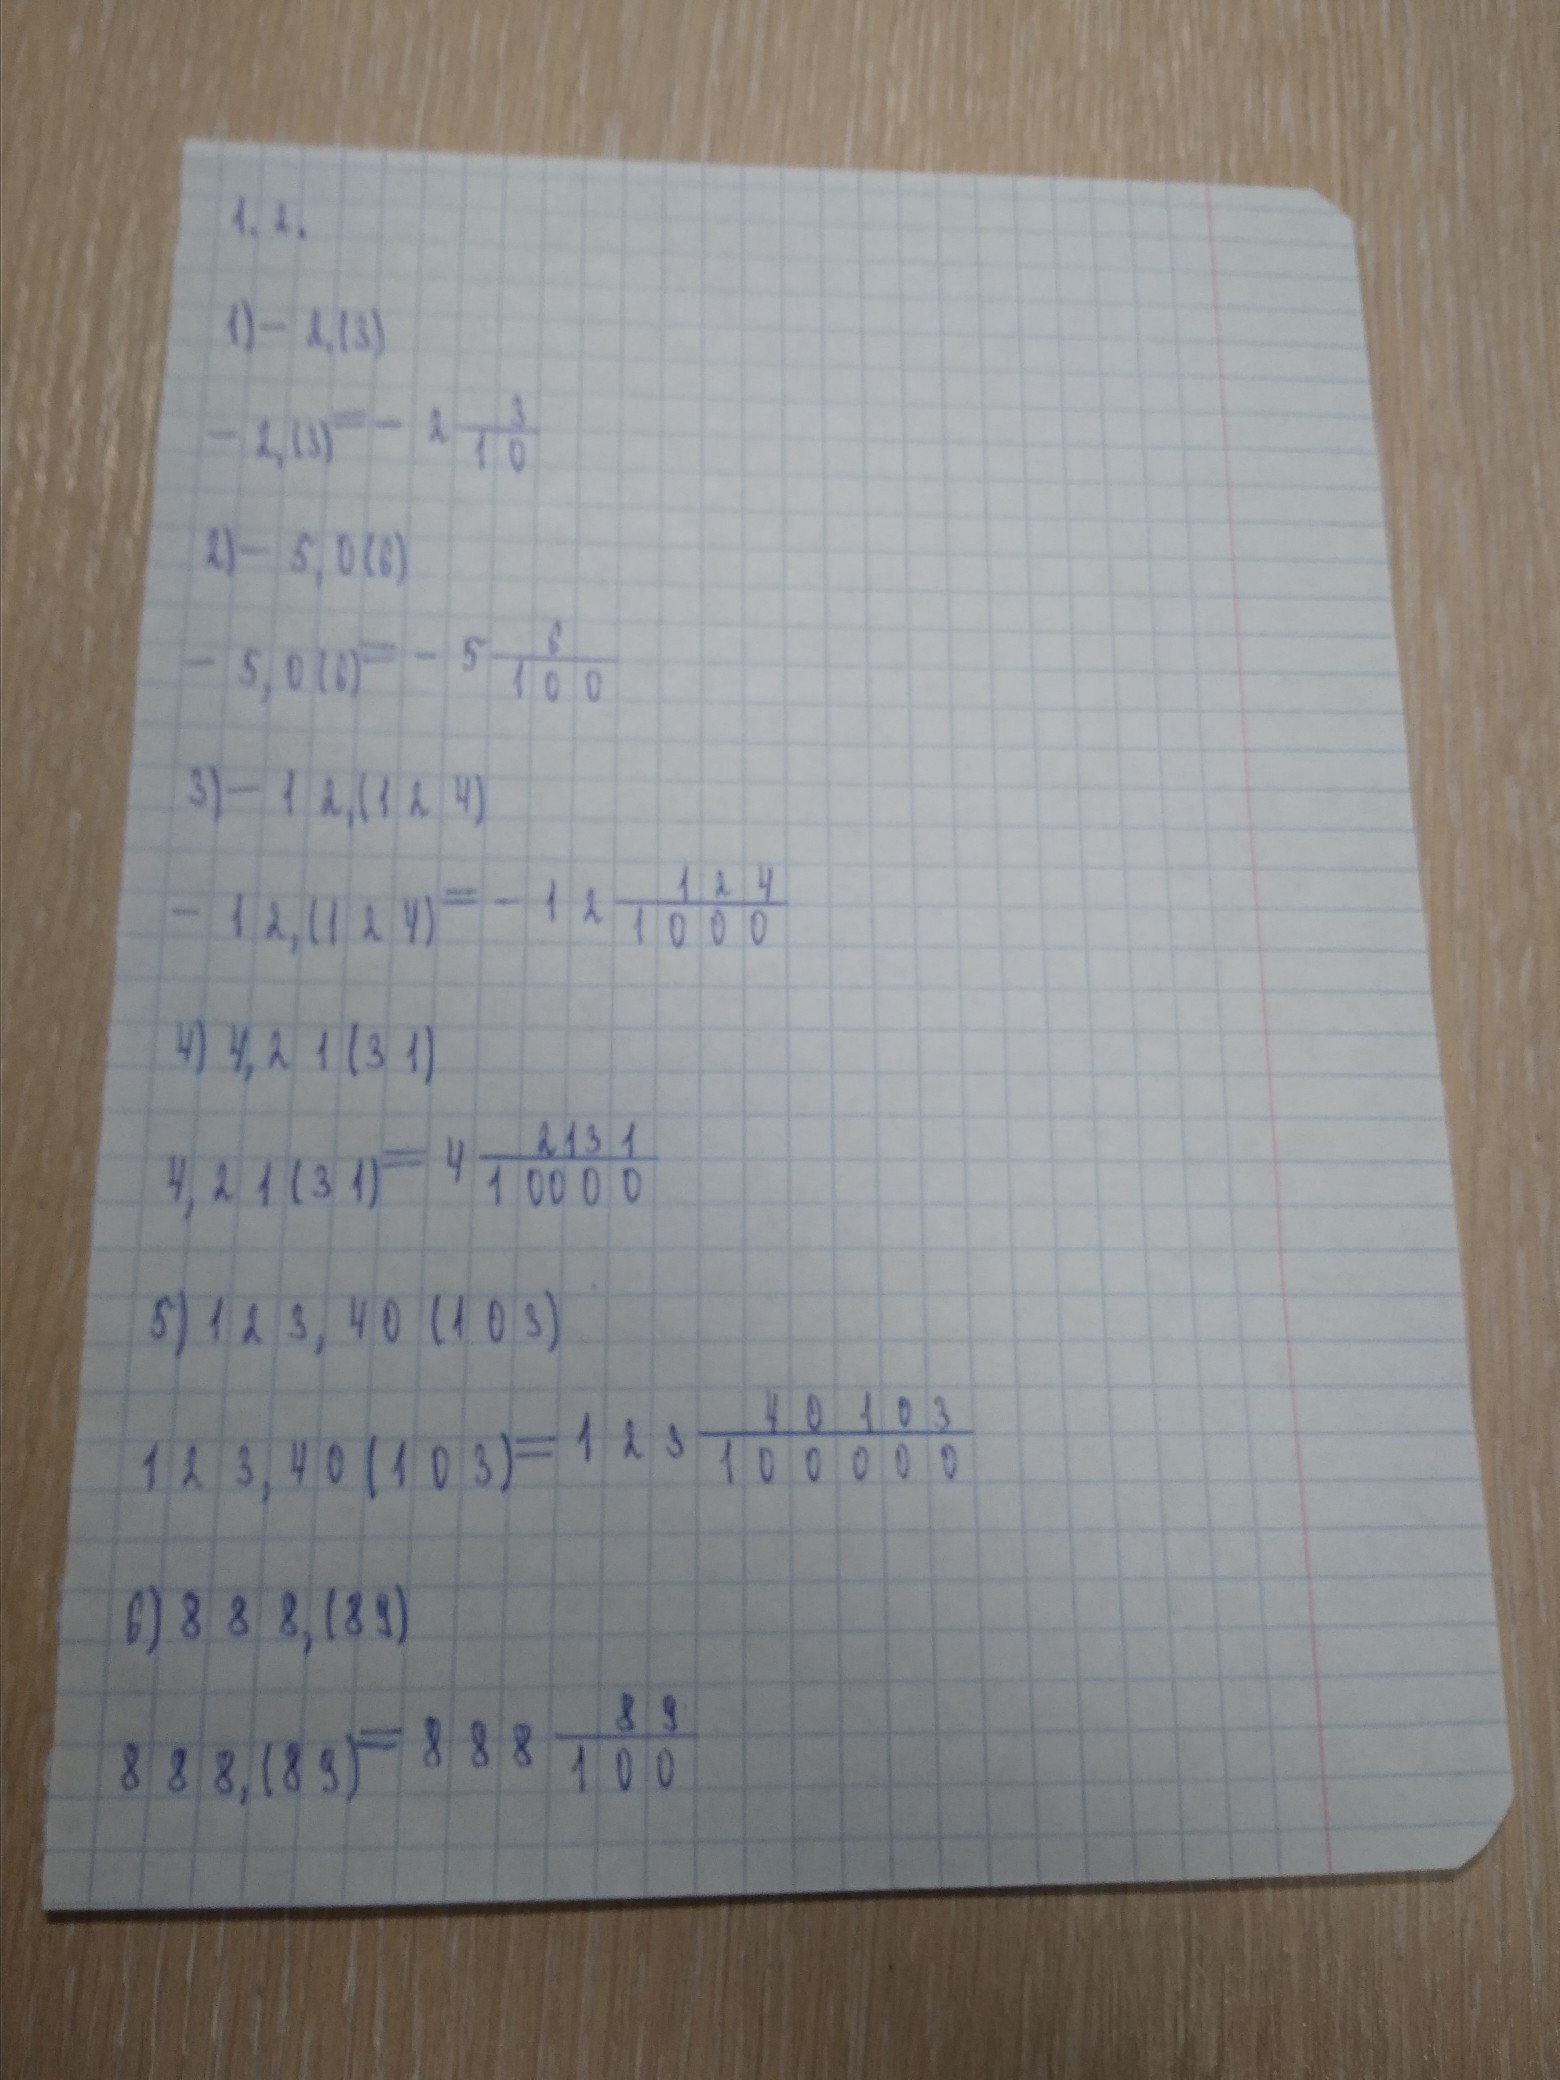 1.2.
1) - 2,(3)
- 2,(3) = - 2 3/10
2) - 5,0(6)
- 5,0(6) = - 5 6/100
3) - 12,(124)
- 12,(124) = - 12 124/1000
4) 4,21(31)
4,21(31) = 4 2131/10000
5) 123,40(103)
123,40(103) = 123 40103/100000
6) 888,(89)
888,(89) = 888 89/100